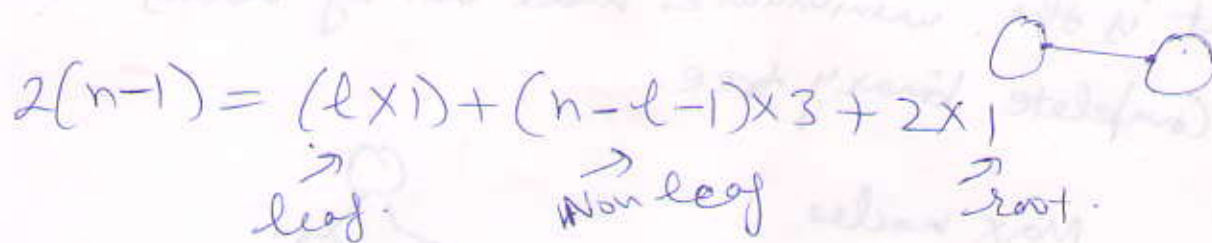 2(n-1) = (l×1) + (n-l-1)×3 + 2×1
leaf. Non leaf root.